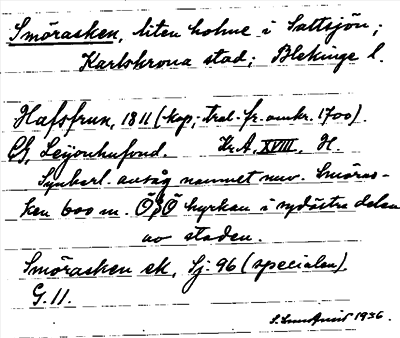 Smörasken, liten holme i Saltsjön;
Karlskrona stad; Blekinge l.
Hafsfrun, 1811 (kop. trol. fr. omkr. 1700).
G. Leijonhufvud. Kr. A. XVIII, H.
Synbarl. avsåg namnet nuv. Smöras-
ken 600 m. ÖSÖ kyrkan i sydöstra delen
av staden.
Smörasken ek, Sj. 96 (specialen).
G. 11.
1936.